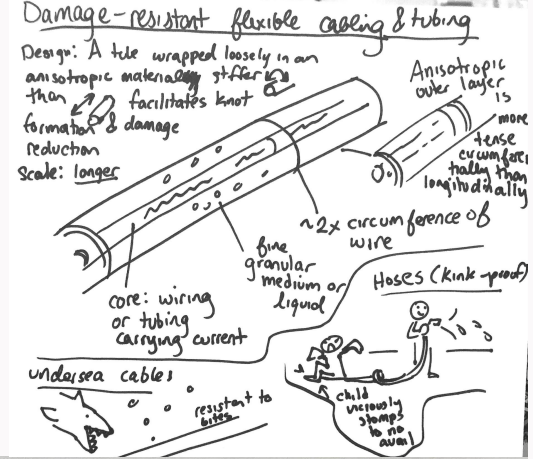 Damage-resistant flexible cabling & tubing
Design: A tube wrapped loosely in an
anisotropic material stiffer
than
facilitates knot
formation & damage
reduction
Scale: longer
Anisotropic
outer layer
is
more
tense
circumferen
tially than
longitudinally
~2x circumference of
wire
fine
granular
medium or
liquid
core: wiring
or tubing
carrying current
Hoses (kink-proof)
undersea cables
resistant to
bites
child
viciously
stomps
to no
avail